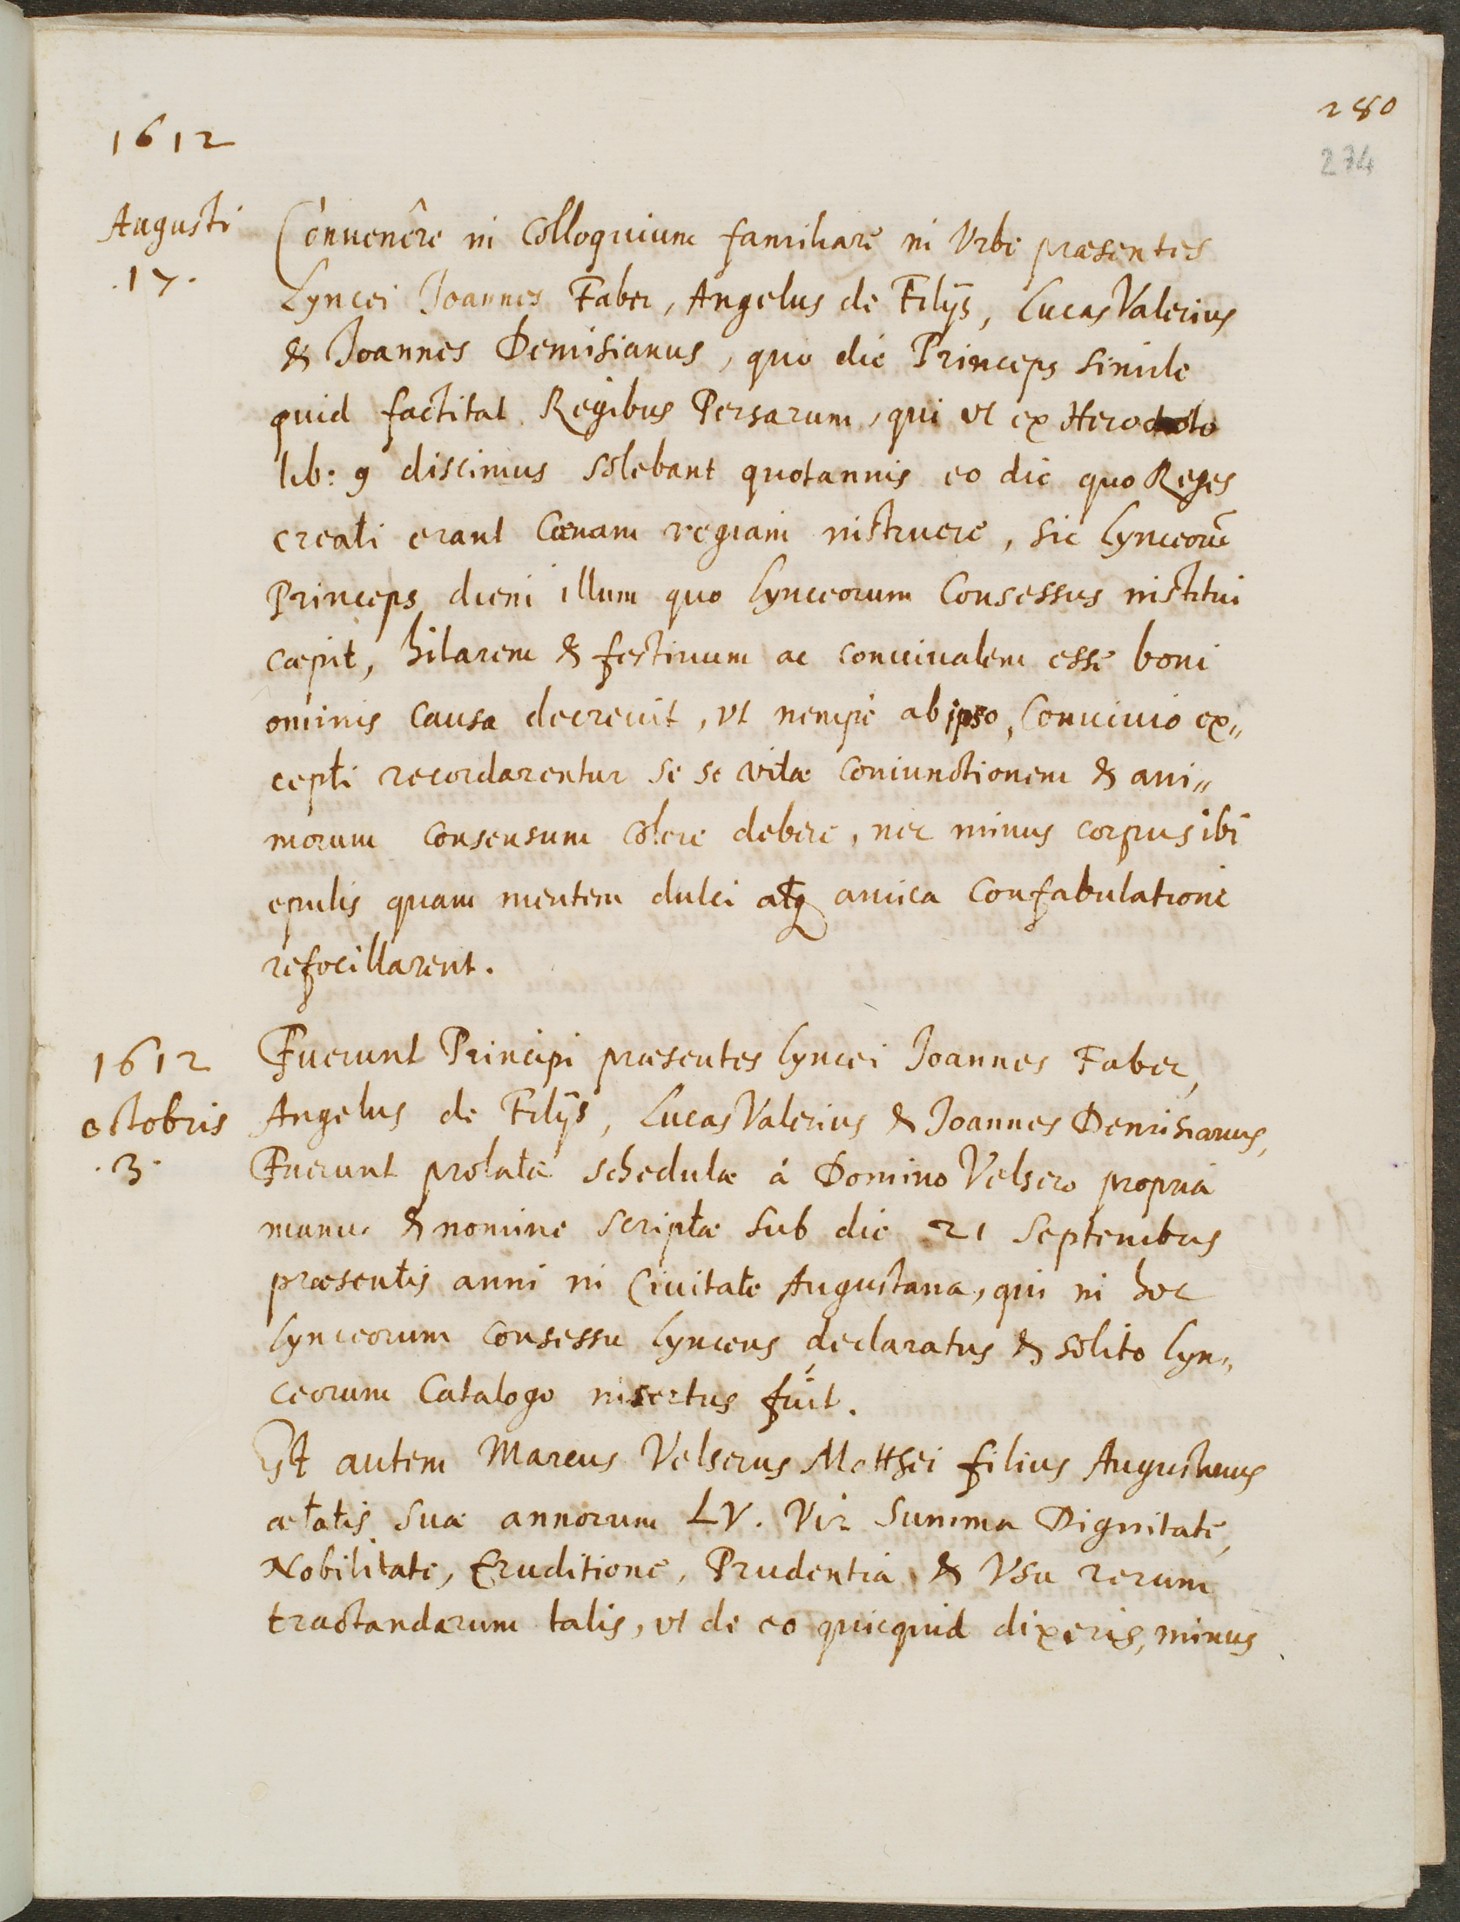 280
274
1612
Augusti
.17.
Convenêre in Colloquium familiare in Vrbe præsentes
Lyncei Joannes Faber, Angelus de Filijs, Lucas Valerius
& Joannes Demisianus, quo die Princeps simile
quid factitat Regibus Persarum, qui vt ex Herodoto
lib: 9 discimus solebant quotannis eo die quo Reges
creati erant Cœnam regiam instruere, sic Lynceorũ
Princeps diem illum quo Lynceorum Consessus institui
cæpit, hilarem & festiuum ac conuiualem esse boni
ominis causa decreuit, vt nempe ab ipso, Conuiuio ex„
cepti recordarentur se se vitæ coniunctionem & ani„
morum consensum colere debere, nec minus corpus ibi
epulis quam mentem dulci atq amica confabulatione
refocillarent.
1612
octobris
.3.
Fuerunt Principi præsentes Lyncei Joannes Faber,
Angelus de Filijs, Lucas Valerius & Joannes Demisianus,
Fuerunt prolatæ schedulæ á Domino Velsero propria
manu & nomine scriptæ sub die 21 Septembris
præsentis anni in Ciuitate Augustana, qui in hoc
Lynceorum consessu Lynceus declaratus & solito Lyn„
ceorum Catalogo insertus fuit.
Est autem Marcus Velserus Matthei filius Augustanus
ætatis suæ annorum LV. Vir summa Dignitate,
Nobilitate, Eruditione, Prudentia, & Vsu rerum
tractandarum talis, vt de eo quicquid dixeris, minus